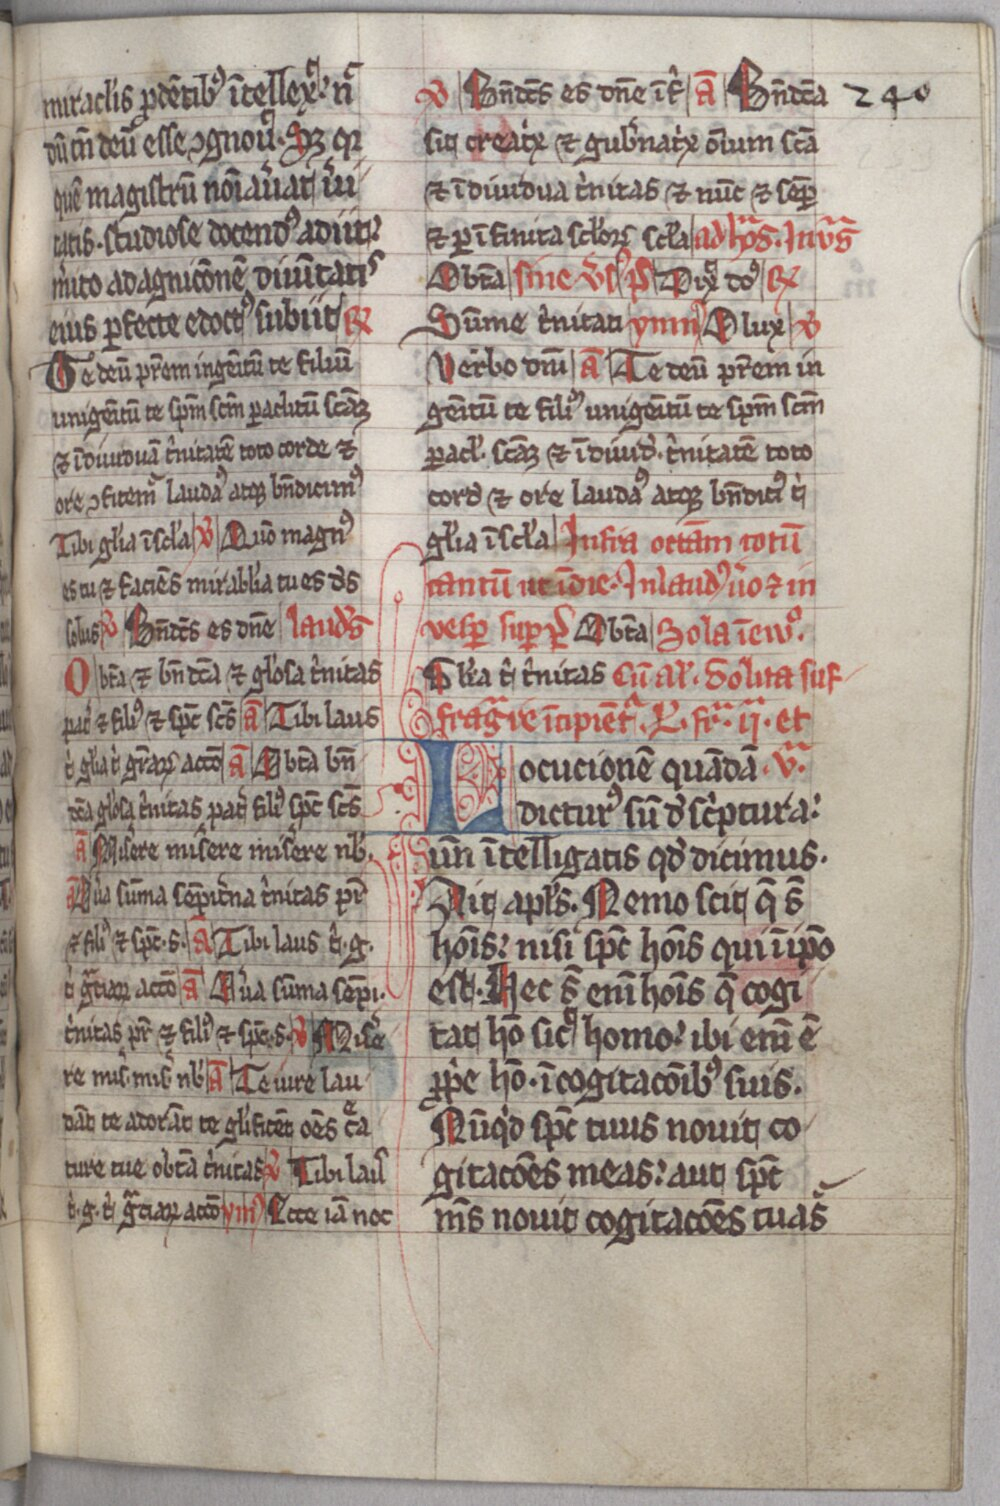 miraclis p̄cedētib⁹ ītellex̄at. nō
dū tn̄ deū esse ꝯgnou̇at. Sz qꝛ
quē magistrū noīau̇at v̇i
tatis. studiose docend⁹ adiit.
m̄ito ad agnicōnē diuītatis
eius perfecte edoct⁹ subiit ℟
Te deū pr̄em ingēitū te filiū
unigēitū te sp̄m sc̄m paclitū scāꝫ
⁊ īdiuiduā t̄nitatē toto corde ⁊
ore ꝯfitem̄ laudam⁹ atqꝫ bn̄dicim⁹
Tibi gl̄ia ī scl̄a ℣ Qm̄o magn⁹
es tu ⁊ faciēs mirabl̄ia tu es d̄s
solus ℣ Bn̄dc̄s es dn̄e laud̄s
Obtā ⁊ bn̄dc̄a ⁊ gl̄osa t̄nitas
pat̄ ⁊ fili⁹ ⁊ sp̄c sc̄s ā Tibi laus
t̄ gl̄ia t̄ gr̄arꝫ acc̄o ā O btā bn̄
dc̄a gl̄osa t̄nitas pat̄ fili⁹ sp̄c sc̄s
ā Mis̄ere mis̄ere mis̄ere nb̄
ā O v̄a sūma sēpit̄na t̄nitas pr̄
⁊ fili⁹ ⁊ sp̄c. s. ā Tibi laus t̄. g.
t̄ gr̄arꝫ acc̄o ā O v̄a sūma sēpi.
t̄nitas pr̄ ⁊ fili⁹ ⁊ sp̄c. s. ℣ Mise
re mis̄. mis̄ nb̄ ā Te iure lau
dāt te adorāt te gl̄ificēt oēs c̄a
ture tue o btā t̄nitas ℣ Tibi laus
t̄. g. t̄ gr̄arꝫ acc̄o ym̄ Ecce iā noc
℣ Bn̄dc̄s es dn̄e ī f̄ ā Bn̄dc̄a 240
sit creat̄x ⁊ gub̄nat̄x ōīum sc̄a
⁊ īdiuidua t̄nitas ⁊ nūc ⁊ semp̄
⁊ p̄ īfinita sclōrꝫ scl̄a ad
O btā sine Dix̄ do⁹ ℟
Sūme t̄nitati ymn⁹ O lux ℣
Verbo dn̄i ā Te deū pr̄em in
gēitū te fili⁹ unigēitū te sp̄m sc̄m
pacl̄. scāꝫ ⁊ īdiuid̄. t̄nitatē toto
cord̄ ⁊ ore laudam⁹ atqꝫ bn̄dic⁹ t̄i
gl̄ia ī scl̄a Infra octām totū
tantū ut ī die. In laud⁹ ūo ⁊ in
vesp̄ sup̄ p̄s O btā Sola
Gl̄ia t̄ t̄nitas Cū al̄. Solita suf
fragia īcipient̄. L. fr̄. ij. et
Locucionē quādā v̄.
dictur⁹ sū d̄ sc̄ptura.
un̄ ītelligatis qd̄ dicimus.
Ait apl̄s. Nemo scit q̄ s̄
hoīs. nisi sp̄c hoīs qui ī ip̄o
est. Nec s̄ enī hoīs q̄ cogi
tat hō sic̄ homo. ibi enī ē
p̄p̄e hō. ī cogitacōib⁹ suis.
Nūqd̄ sp̄c tuus nouit co
gitacōes meas. aut sp̄c
m̄s nouit cogitacōes tuas